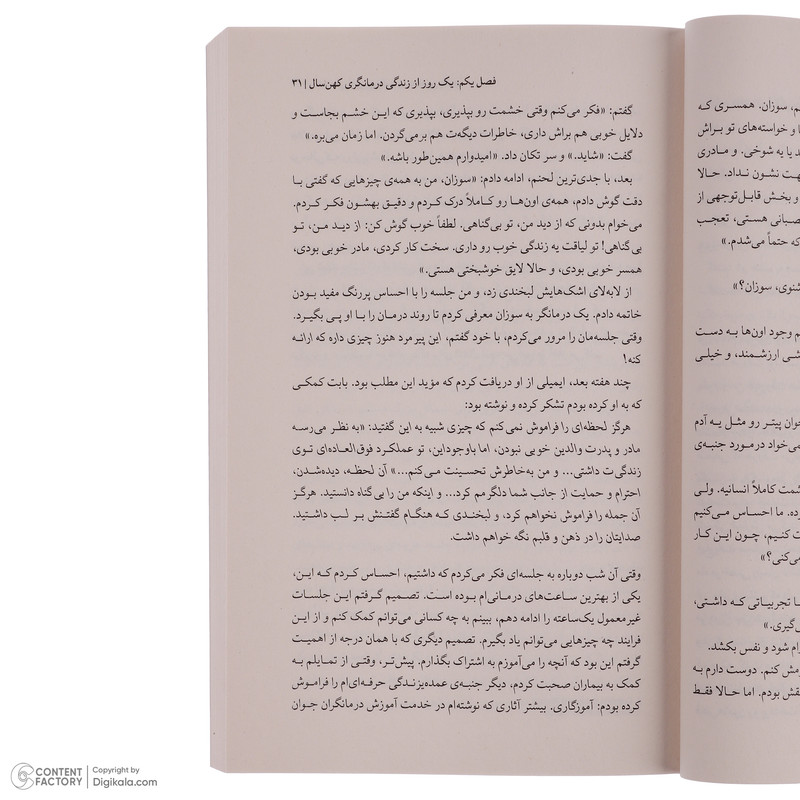 م، سوزان. همسری که
ا و خواسته‌های تو براش
د یا یه شوخی. و مادری
هت نشون نداد. حالا
و بخش قابل‌توجهی از
صبانی هستی، تعجب
که حتماً می‌شدم.»
شنوی، سوزان؟»
م وجود اون‌ها به دست
شی ارزشمند، و خیلی
خوان پیتر رو مثل یه آدم
می‌خواد درمورد جنبه‌ی
شمت کاملاً انسانیه. ولی
رده. ما احساس می‌کنیم
ت کنیم، چون این کار
می‌کنی؟»
ا تجربیاتی که داشتی،
ی‌گیری.»
رام شود و نفس بکشد.
ومش کنم. دوست دارم به
قش بودم. اما حالا فقط
فصل یکم: یک روز از زندگی درمانگری کهن‌سال | ۳۱
گفتم: «فکر می‌کنم وقتی خشمت رو بپذیری، بپذیری که این خشم بجاست و
دلایل خوبی هم براش داری، خاطرات دیگه‌ت هم برمی‌گردن. اما زمان می‌بره.»
گفت: «شاید.» و سر تکان داد. «امیدوارم همین‌طور باشه.»
بعد، با جدی‌ترین لحنم، ادامه دادم: «سوزان، من به همه‌ی چیزهایی که گفتی با
دقت گوش دادم، همه‌ی اون‌ها رو کاملاً درک کردم و دقیق بهشون فکر کردم.
می‌خوام بدونی که از دید من، تو بی‌گناهی. لطفاً خوب گوش کن: از دید من، تو
بی‌گناهی! تو لیاقت یه زندگی خوب رو داری. سخت کار کردی، مادر خوبی بودی،
همسر خوبی بودی، و حالا لایق خوشبختی هستی.»
از لابه‌لای اشک‌هایش لبخندی زد، و من جلسه را با احساس پررنگ مفید بودن
خاتمه دادم. یک درمانگر به سوزان معرفی کردم تا روند درمان را با او پی بگیرد.
وقتی جلسه‌مان را مرور می‌کردم، با خود گفتم، این پیرمرد هنوز چیزی داره که ارائه
کنه!
چند هفته بعد، ایمیلی از او دریافت کردم که مؤید این مطلب بود. بابت کمکی
که به او کرده بودم تشکر کرده و نوشته بود:
هرگز لحظه‌ای را فراموش نمی‌کنم که چیزی شبیه به این گفتید: «به نظر می‌رسه
مادر و پدرت والدین خوبی نبودن، اما باوجوداین، تو عملکرد فوق‌العاده‌ای توی
زندگی‌ت داشتی... و من به‌خاطرش تحسینت می‌کنم...» آن لحظه، دیده‌شدن،
احترام و حمایت از جانب شما دلگرمم کرد... و اینکه من را بی‌گناه دانستید. هرگز
آن جمله را فراموش نخواهم کرد، و لبخندی که هنگام گفتنش بر لب داشتید.
صدایتان را در ذهن و قلبم نگه خواهم داشت.
وقتی آن شب دوباره به جلسه‌ای فکر می‌کردم که داشتیم، احساس کردم که این،
یکی از بهترین ساعت‌های درمانی‌ام بوده است. تصمیم گرفتم این جلسات
غیرمعمول یک‌ساعته را ادامه دهم، ببینم به چه کسانی می‌توانم کمک کنم و از این
فرایند چه چیزهایی می‌توانم یاد بگیرم. تصمیم دیگری که با همان درجه از اهمیت
گرفتم این بود که آنچه را می‌آموزم به اشتراک بگذارم. پیش‌تر، وقتی از تمایلم به
کمک به بیماران صحبت کردم، دیگر جنبه‌ی عمده‌ی‌زندگی حرفه‌ای‌ام را فراموش
کرده بودم: آموزگاری. بیشتر آثاری که نوشته‌ام در خدمت آموزش درمانگران جوان
CONTENT FACTORY
Copyright by
Digikala.com